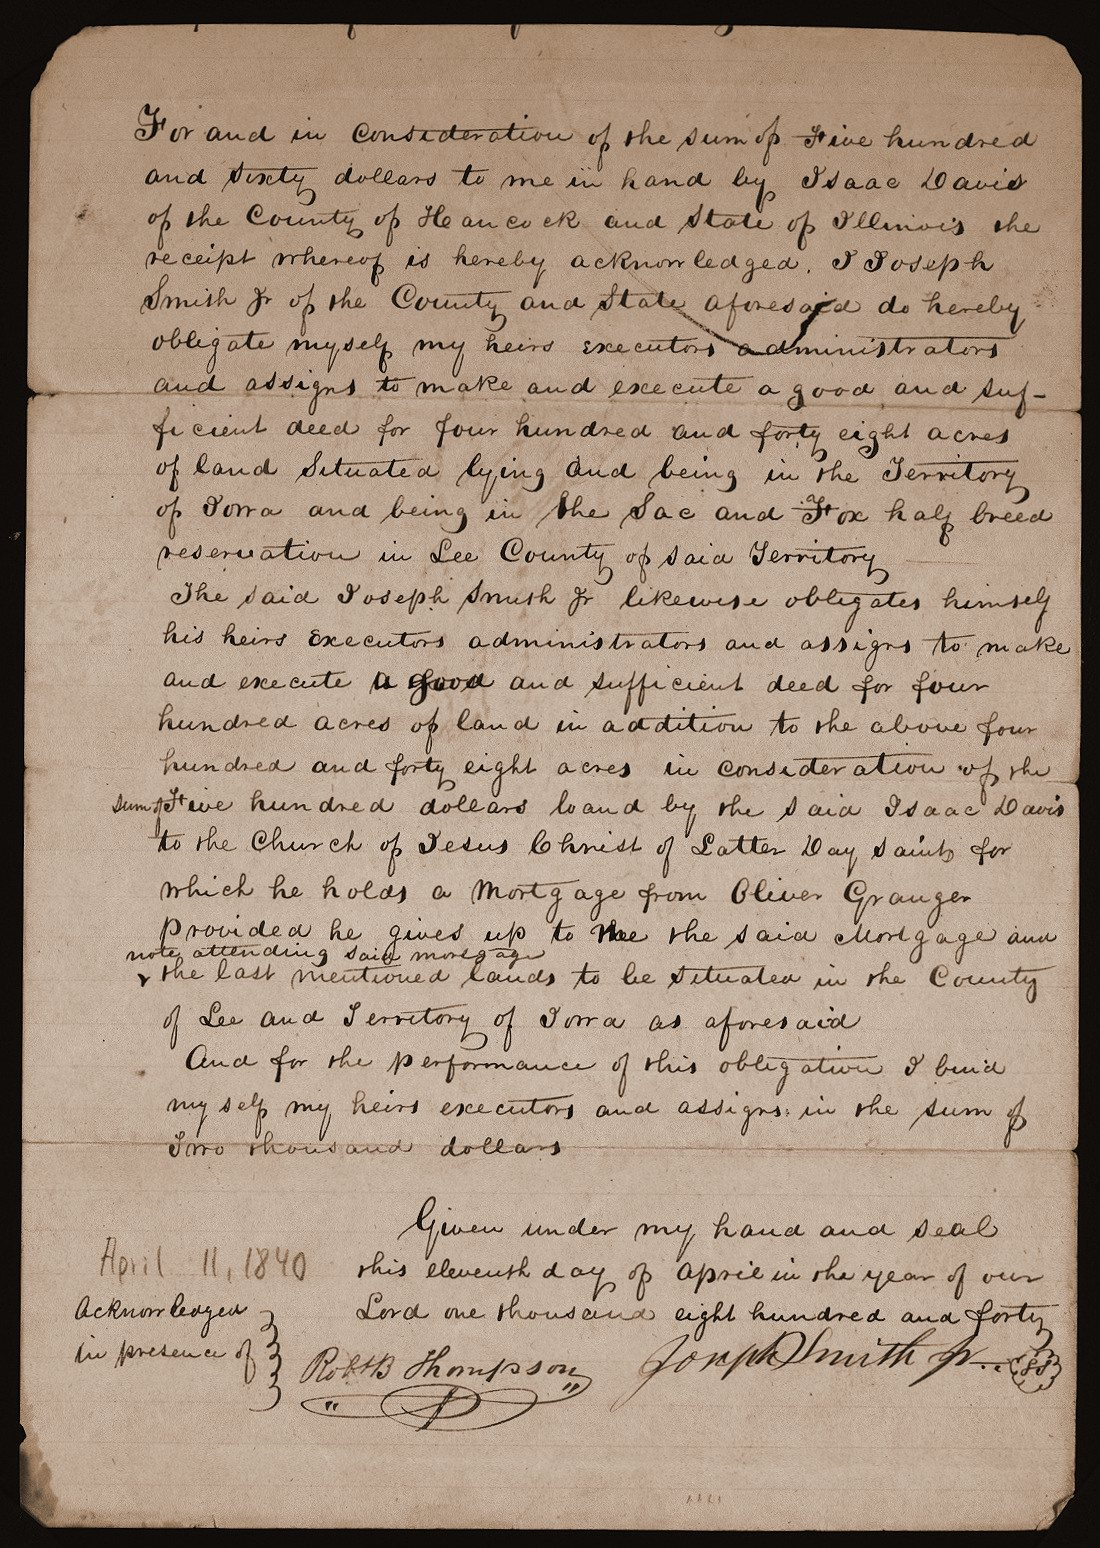 For and in consideration of the sum of Five hundred
and sixty dollars to me in hand by Isaac Davis
of the County of Hancock and State of Illinois the
receipt whereof is hereby acknowledged. I Joseph
Smith Jr of the County and State aforesaid do hereby
obligate myself my heirs executors administrators
and assigns to make and execute a good and suf-
ficient deed for four hundred and forty eight acres
of land Situated lying and being in the Territory
of Iowa and being in the Sac and Fox half breed
reservation in Lee County of said Territory
The said Joseph Smith Jr likewise obligates himself
his heirs Executors administrators and assigns to make
and execute a good and sufficient deed for four
hundred acres of land in addition to the above four
hundred and forty eight acres in consideration of the
sum of Five hundred dollars loand by the said Isaac Davis
to the Church of Jesus Christ of Latter Day Saints for
which he holds a Mortgage from Oliver Granger
provided he gives up to the said Mortgage and
note attending said mortgage
& the last mentioned lands to be situated in the County
of Lee and Territory of Iowa as aforesaid
And for the performance of this obligation I bind
my self my heirs executors and assigns in the sum of
Two thousand dollars
Given under my hand and seal
April 11, 1840
this eleventh day of April in the year of our
Lord one thousand eight hundred and forty
Acknowledged
in presence of
Robt B Thompson
Joseph Smith Jr